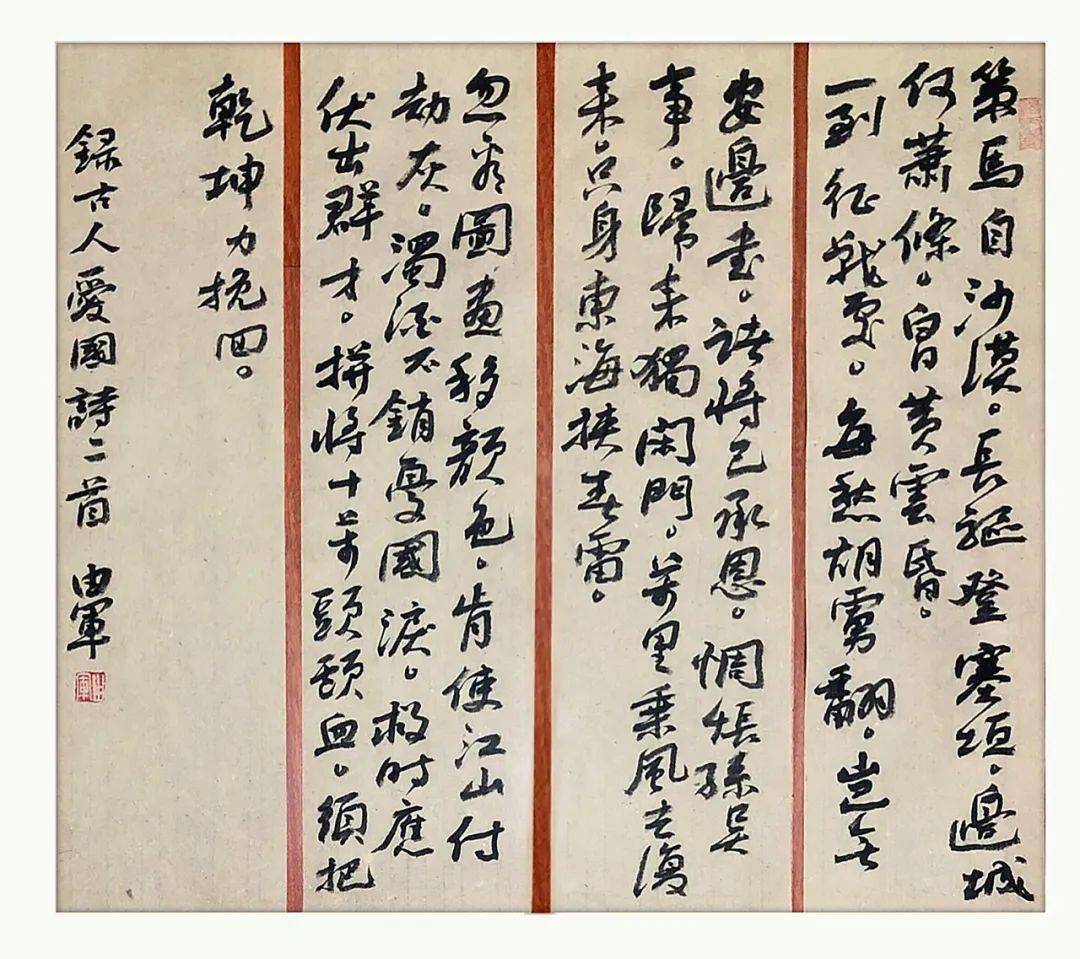 策馬自沙漠。長驅登塞垣。邊城
何蕭條。白日黃雲昏。
一到征戰處。每愁胡虜翻。豈無
安邊書。諸將已承恩。惆悵孫吳
事。歸来獨閉門。萬里乘風去復
来。只身東海挾春雷。
忽看圖畫移顏色。肯使江山付
劫灰。濁酒不銷憂國淚。救時應
伏出群才。拼將十萬頭顱血。須把
乾坤力挽回。
録古人愛國詩二首 由軍